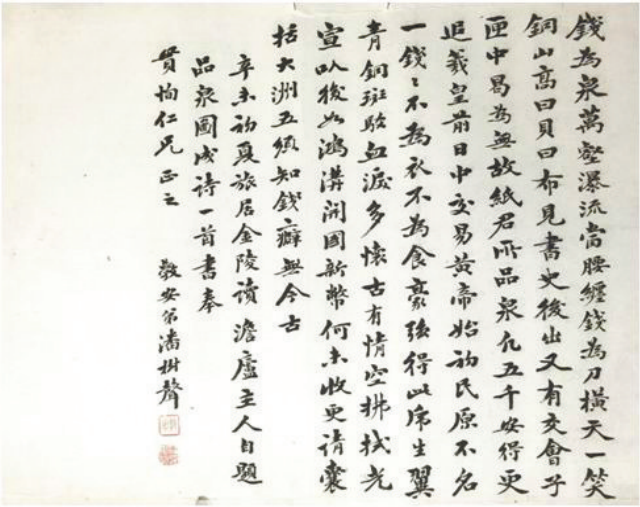 錢為泉萬壑瀑流當腰纏錢為刀橫天一笑
銅山高曰貝曰布見書史後出又有交會子
匣中曷為無故紙君所品泉凡五千安得更
追羲皇前日中交易黃帝始初民原不名
一錢〻不為衣不為食豪強得此席生翼
青銅斑駁血淚多懷古有情空拂拭光
宣以後如鴻溝開國新幣何未收更請囊
括大洲五須知錢癖無今古
辛未初夏旅居金陵讀澹廬主人自題
品泉圖成詩一首書奉
貫恂仁兄正之
敬安弟潘樹聲